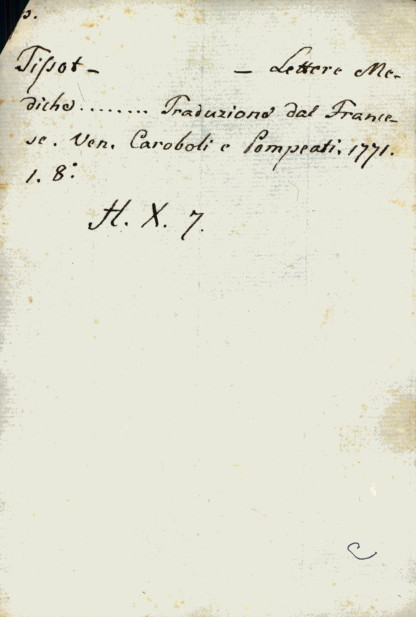 Tissot - - Lettere Me-
diche ........ Traduzione dal France-
se. Ven. Caroboli e Pompeati. 1771.
1. 8:
H. X. 7.